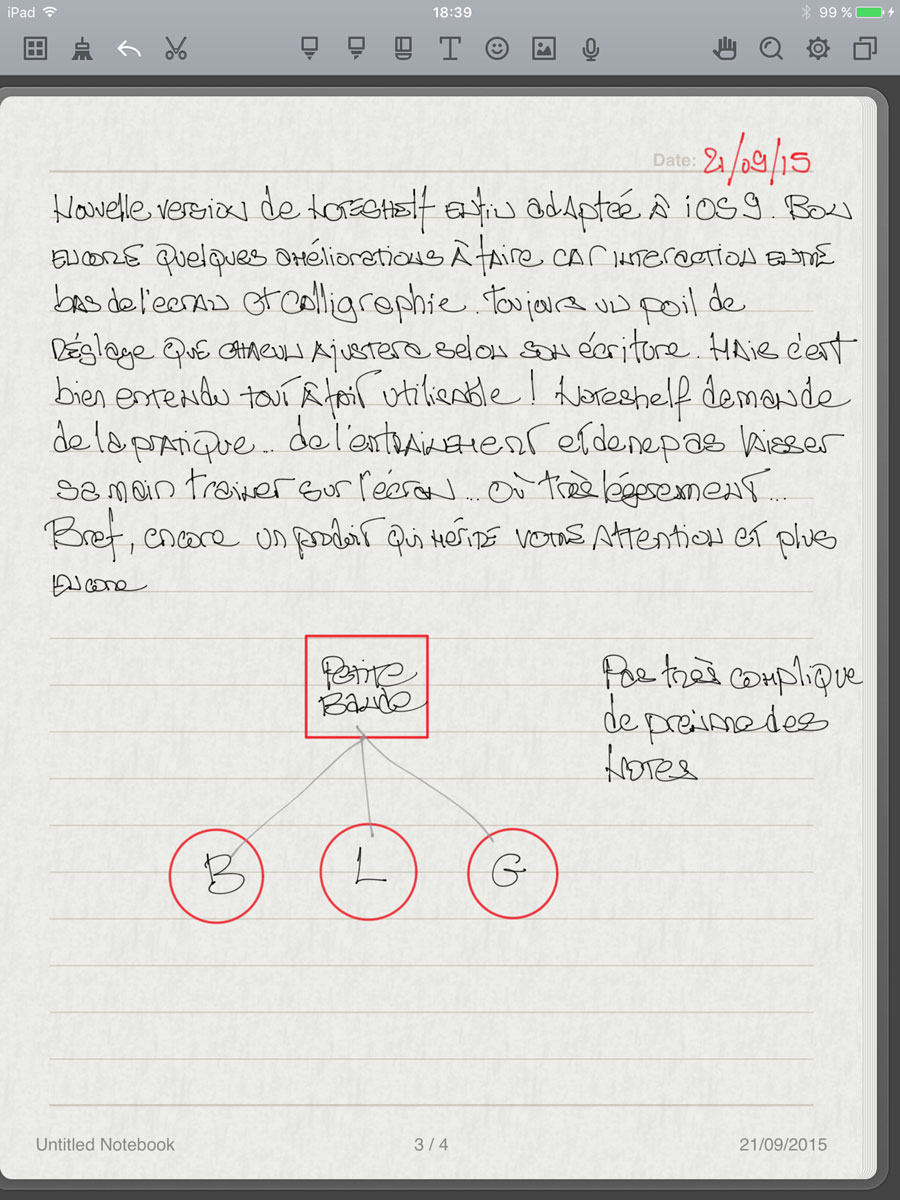 iPad 18:39 99 %
Date: 21/09/15
Nouvelle version de Noteshelf enfin adaptée à iOS 9. Bon
encore quelques améliorations à faire car interaction entre
bas de l'écran et calligraphie. Toujours un poil de
réglage que chacun ajustera selon son écriture. Mais c'est
bien entendu tout à fait utilisable ! Noteshelf demande
de la pratique... de l'entraînement et de ne pas laisser
sa main trainer sur l'écran... où très légèrement...
Bref, encore un produit qui mérite votre attention et plus
encore
Petite
Bande
Pas très compliqué
de prendre des
notes
B L G
Untitled Notebook 3 / 4 21/09/2015